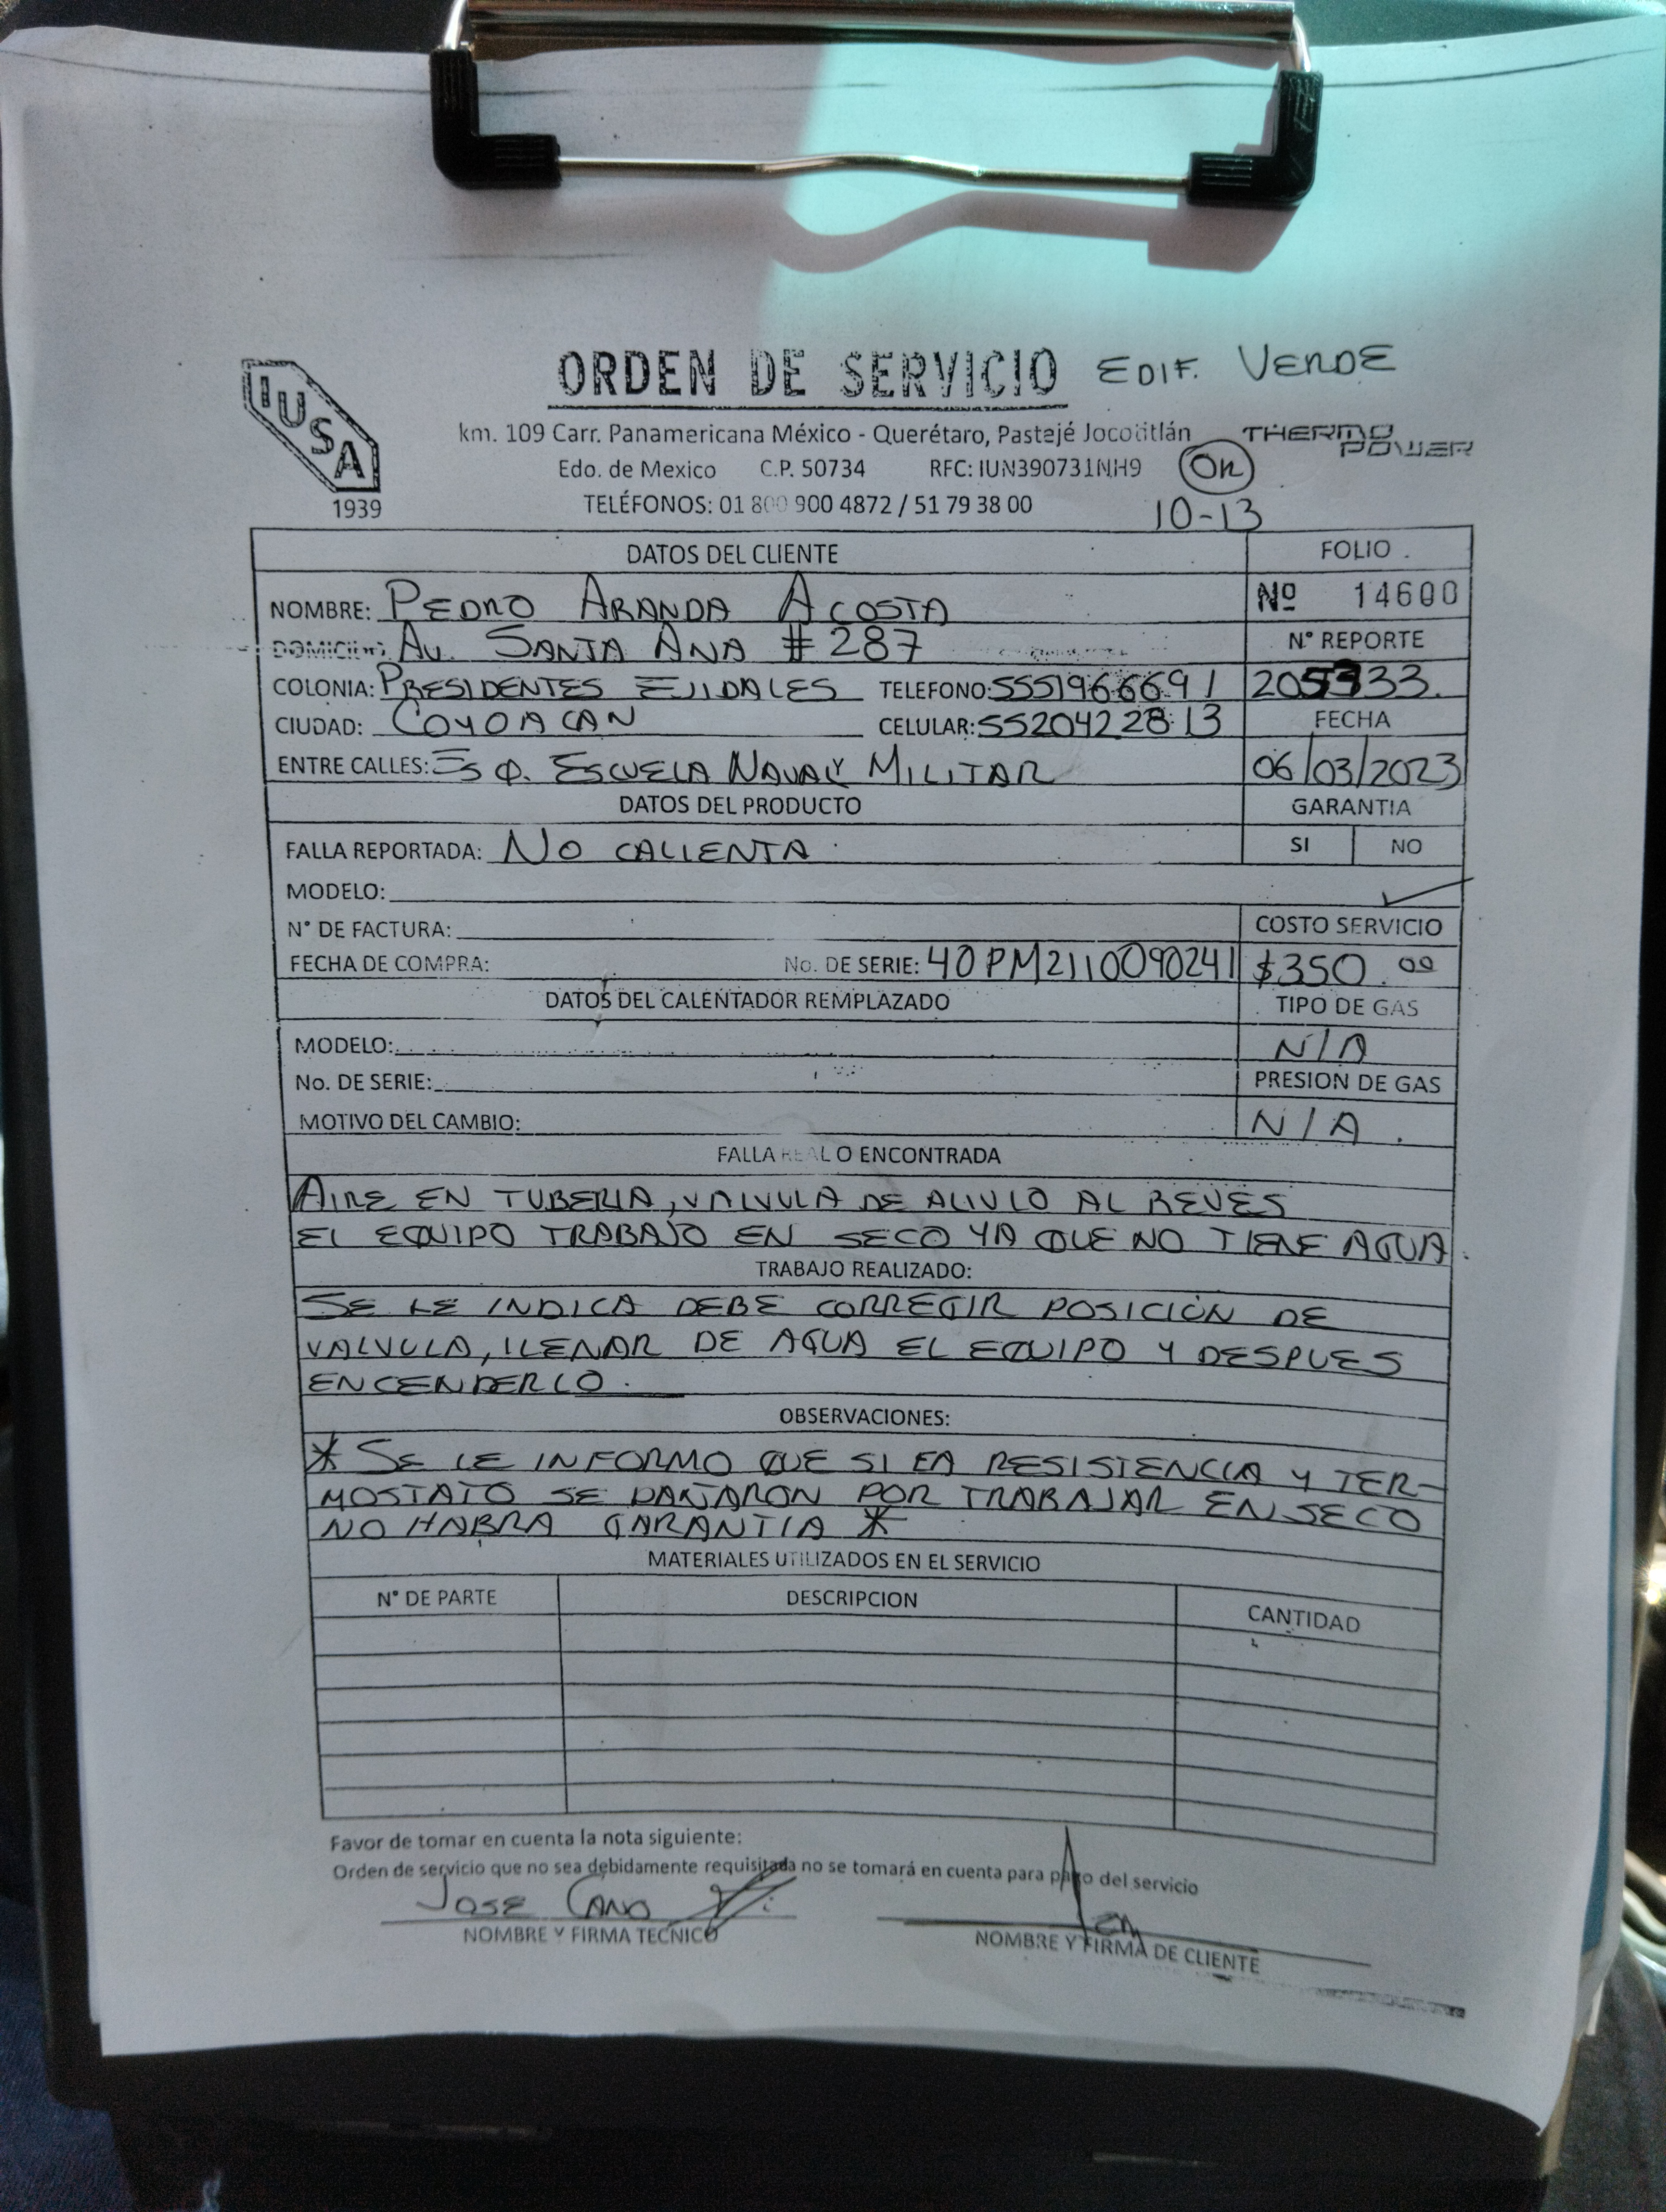 ORDEN DE SERVICIO EDIF. VERDE
IUSA
1939
km. 109 Carr. Panamericana México - Querétaro, Pastejé Jocotitlán
THERMO POWER
Edo. de Mexico C.P. 50734 RFC: IUN390731NH9
TELÉFONOS: 01 800 900 4872 / 51 79 38 00
10-13
DATOS DEL CLIENTE FOLIO
NOMBRE: PEDRO ARANDA ACOSTA Nº 14600
DOMICILIO: AV. SANTA ANA # 287 N° REPORTE
COLONIA: PRESIDENTES EJIDALES TELEFONO: 5551966691
CIUDAD: COYOACAN CELULAR: 5520422813 FECHA
ENTRE CALLES: ESQ. ESCUELA NAVAL MILITAR 06/03/2023
DATOS DEL PRODUCTO GARANTIA
FALLA REPORTADA: NO CALIENTA SI NO
MODELO:
N° DE FACTURA: COSTO SERVICIO
FECHA DE COMPRA: No. DE SERIE: 40PM2110090241 $350.00
DATOS DEL CALENTADOR REMPLAZADO TIPO DE GAS
MODELO: N/A
No. DE SERIE: PRESION DE GAS
MOTIVO DEL CAMBIO: N/A
FALLA REAL O ENCONTRADA
AIRE EN TUBERIA, VALVULA DE ALIVIO AL REVES
EL EQUIPO TRABAJO EN SECO YA QUE NO TIENE AGUA.
TRABAJO REALIZADO:
SE LE INDICA DEBE CORREGIR POSICIÓN DE
VALVULA, LLENAR DE AGUA EL EQUIPO Y DESPUES
ENCENDERLO.
OBSERVACIONES:
* SE LE INFORMO QUE SI LA RESISTENCIA Y TER-
MOSTATO SE DAÑARON POR TRABAJAR EN SECO
NO HABRA GARANTIA *
MATERIALES UTILIZADOS EN EL SERVICIO
N° DE PARTE DESCRIPCION CANTIDAD
Favor de tomar en cuenta la nota siguiente:
Orden de servicio que no sea debidamente requisitada no se tomará en cuenta para pago del servicio
JOSE CANO
NOMBRE Y FIRMA TECNICO NOMBRE Y FIRMA DE CLIENTE